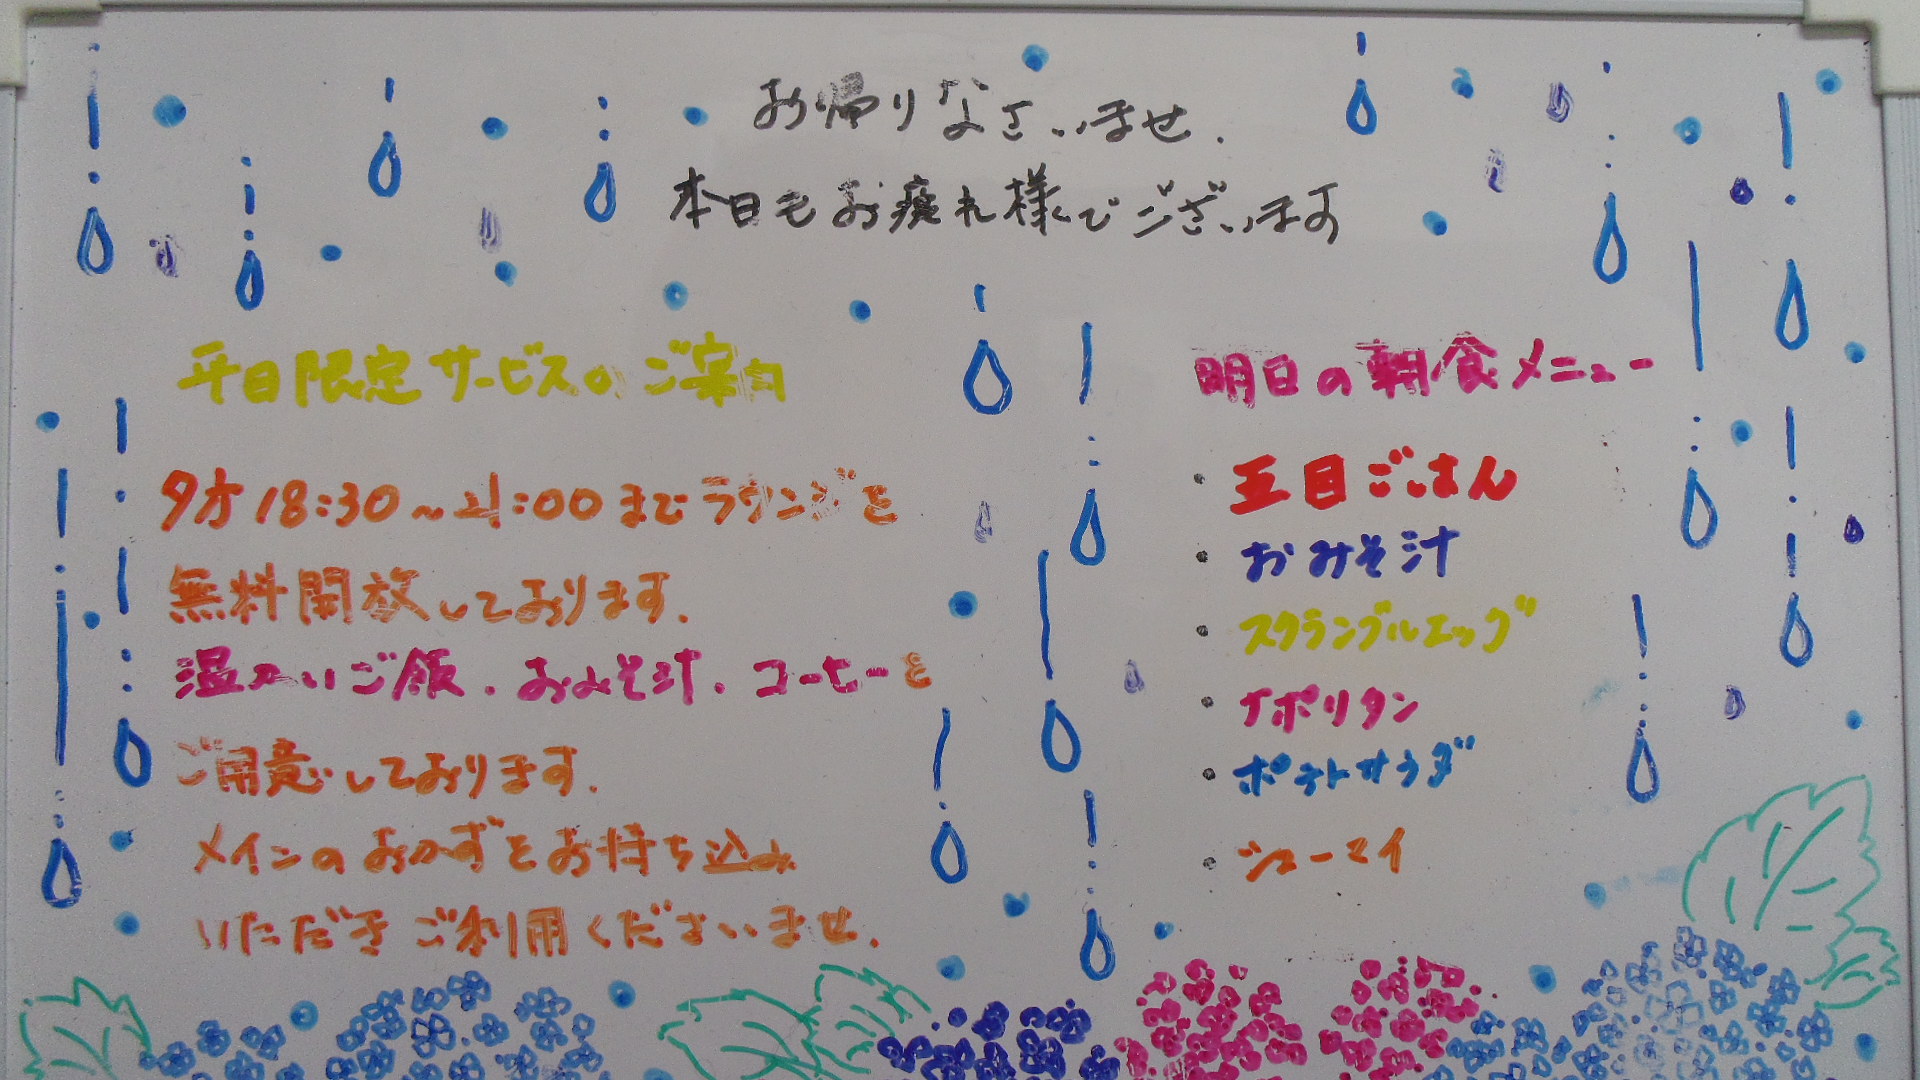 お帰りなさいませ.
本日もお疲れ様でございます
平日限定サービスのご案内
夕方18:30～21:00までラウンジを
無料開放しております.
温かいご飯.おみそ汁.コーヒーを
ご用意しております.
メインのおかずをお持ち込み
いただきご利用くださいませ.
明日の朝食メニュー
・五目ごはん
・おみそ汁
・スクランブルエッグ
・ナポリタン
・ポテトサラダ
・シューマイ